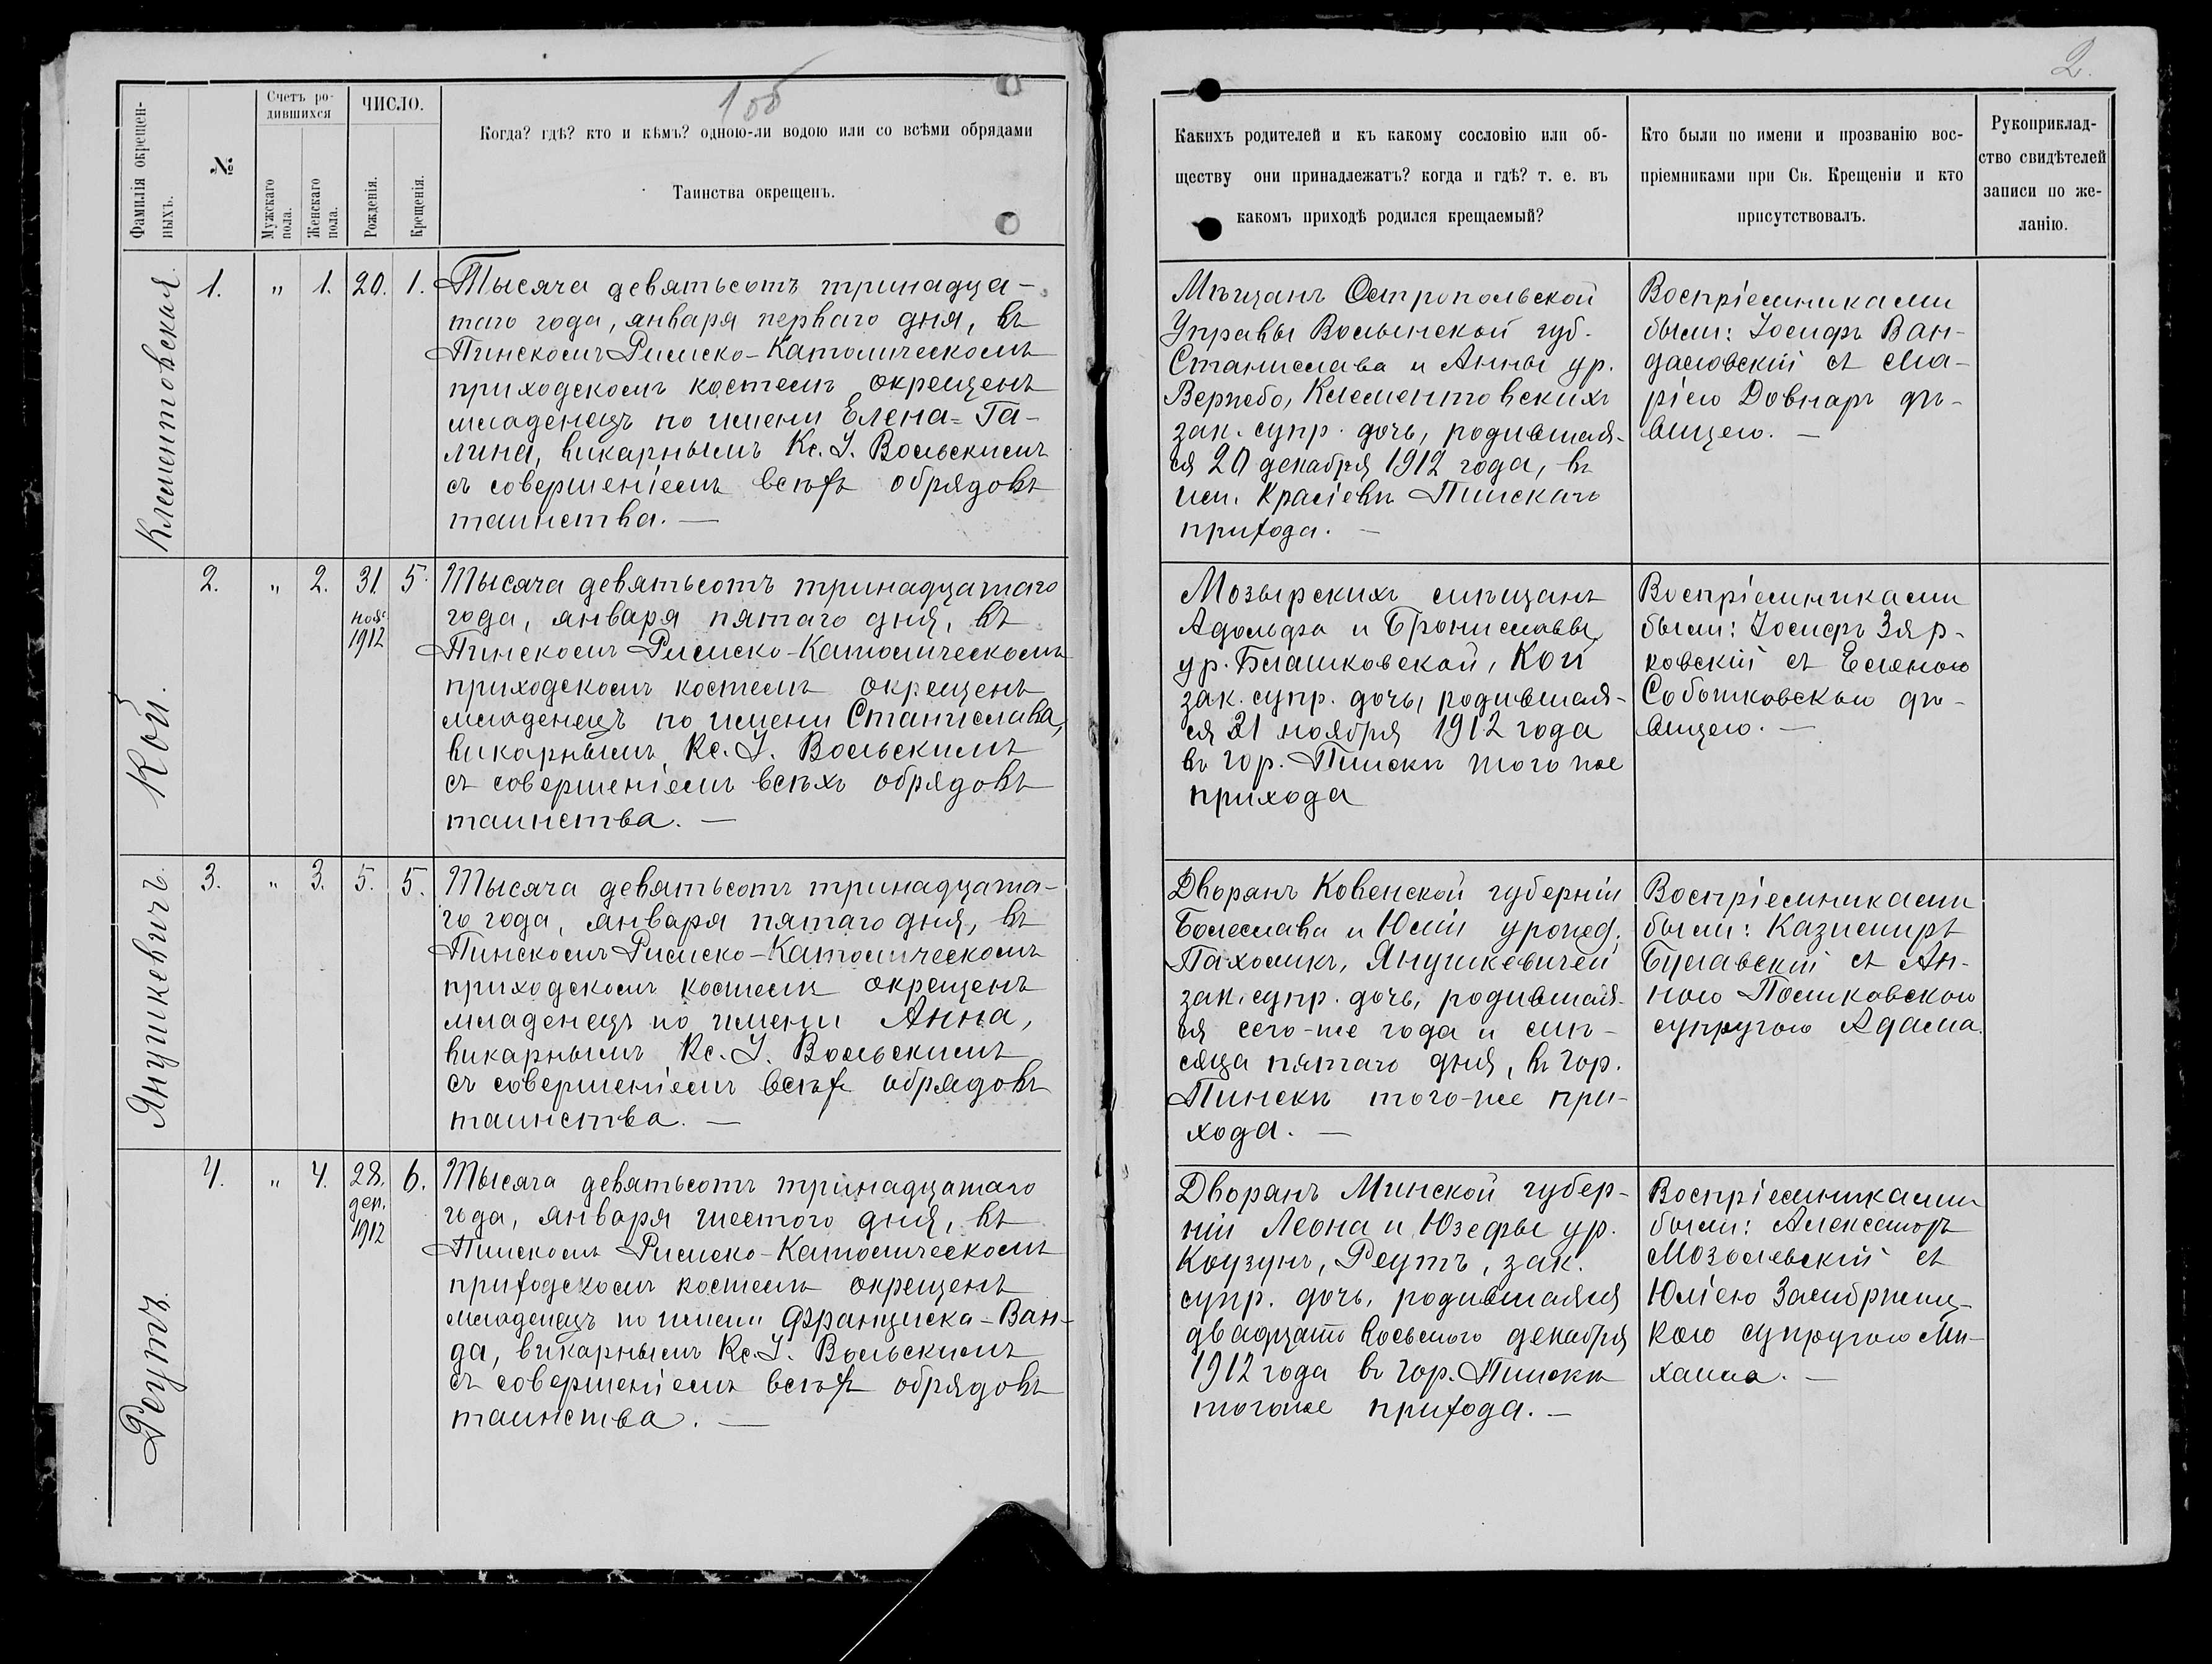 1 об
2.
Фамилія окрещен-
ныхъ.
№
Счетъ ро-
дившихся
Мужскаго
пола.
Женскаго
пола.
ЧИСЛО.
Рожденія.
Крещенія.
Когда? гдѣ? кто и кѣмъ? одною-ли водою или со всѣми обрядами
Таинства окрещенъ.
Какихъ родителей и къ какому сословію или об-
ществу они принадлежатъ? когда и гдѣ? т. е. въ
какомъ приходѣ родился крещаемый?
Кто были по имени и прозванію вос-
пріемниками при Св. Крещеніи и кто
присутствовалъ.
Рукоприклад-
ство свидѣтелей
записи по же-
ланію.
Клементовская.
1. " 1. 20. 1.
Тысяча девятьсотъ тринадца-
таго года, января перваго дня, въ
Пинскомъ Римско-Католическомъ
приходскомъ костелѣ окрещенъ
младенецъ по имени Елена-Га-
лина, викарнымъ Кс. І. Вольскимъ
съ совершеніемъ всѣхъ обрядовъ
таинства. —
Мѣщанъ Остропольской
Управы Волынской губ.
Станислава и Анны ур.
Вербо, Клементовскихъ
зак. супр. дочь, родившая-
ся 20 декабря 1912 года, въ
им. Краіевѣ Пинскаго
прихода. —
Воспріемниками
были: Іосифъ Ван-
даловскій съ Ма-
ріею Довнаръ дѣ-
вицею. —
Кой.
2. " 2. 31. 5.
ноя.
1912
Тысяча девятьсотъ тринадцатаго
года, января пятаго дня, въ
Пинскомъ Римско-Католическомъ
приходскомъ костелѣ окрещенъ
младенецъ по имени Станислава,
викарнымъ Кс. І. Вольскимъ
съ совершеніемъ всѣхъ обрядовъ
таинства. —
Мозырскихъ мѣщанъ
Адольфа и Брониславы
ур. Блашковской, Кой
зак. супр. дочь, родившая-
ся 31 ноября 1912 года
въ гор. Пинскѣ того же
прихода
Воспріемниками
были: Іосифъ Зяр-
ковскій съ Еленою
Соботковскою дѣ-
вицею. —
Янушкевичъ.
3. " 3. 5. 5.
Тысяча девятьсотъ тринадцата-
го года, января пятаго дня, въ
Пинскомъ Римско-Католическомъ
приходскомъ костелѣ окрещенъ
младенецъ по имени Анна,
викарнымъ Кс. І. Вольскимъ
съ совершеніемъ всѣхъ обрядовъ
таинства. —
Дворянъ Ковенской губерніи
Болеслава и Юліи урожд.
Пахоликъ, Янушкевичей
зак. супр. дочь, родившая-
ся сего-же года и мѣ-
сяца пятаго дня, въ гор.
Пинскѣ того-же при-
хода. —
Воспріемниками
были: Казимиръ
Булавскій съ Ан-
ною Полковскою
супругою Адама.
Реутъ.
4. " 4. 28. 6.
дек.
1912
Тысяча девятьсотъ тринадцатаго
года, января шестого дня, въ
Пинскомъ Римско-Католическомъ
приходскомъ костелѣ окрещенъ
младенецъ по имени Франциска-Ван-
да, викарнымъ Кс. І. Вольскимъ
съ совершеніемъ всѣхъ обрядовъ
таинства. —
Дворянъ Минской губер-
ніи Леона и Юзефы ур.
Коузунъ, Реутъ, зак.
супр. дочь, родившаяся
двадцать восьмого декабря
1912 года въ гор. Пинскѣ
тогоже прихода. —
Воспріемниками
были: Александръ
Мозолевскій съ
Юліею Замбржиц-
кою супругою Ми-
хаила. —